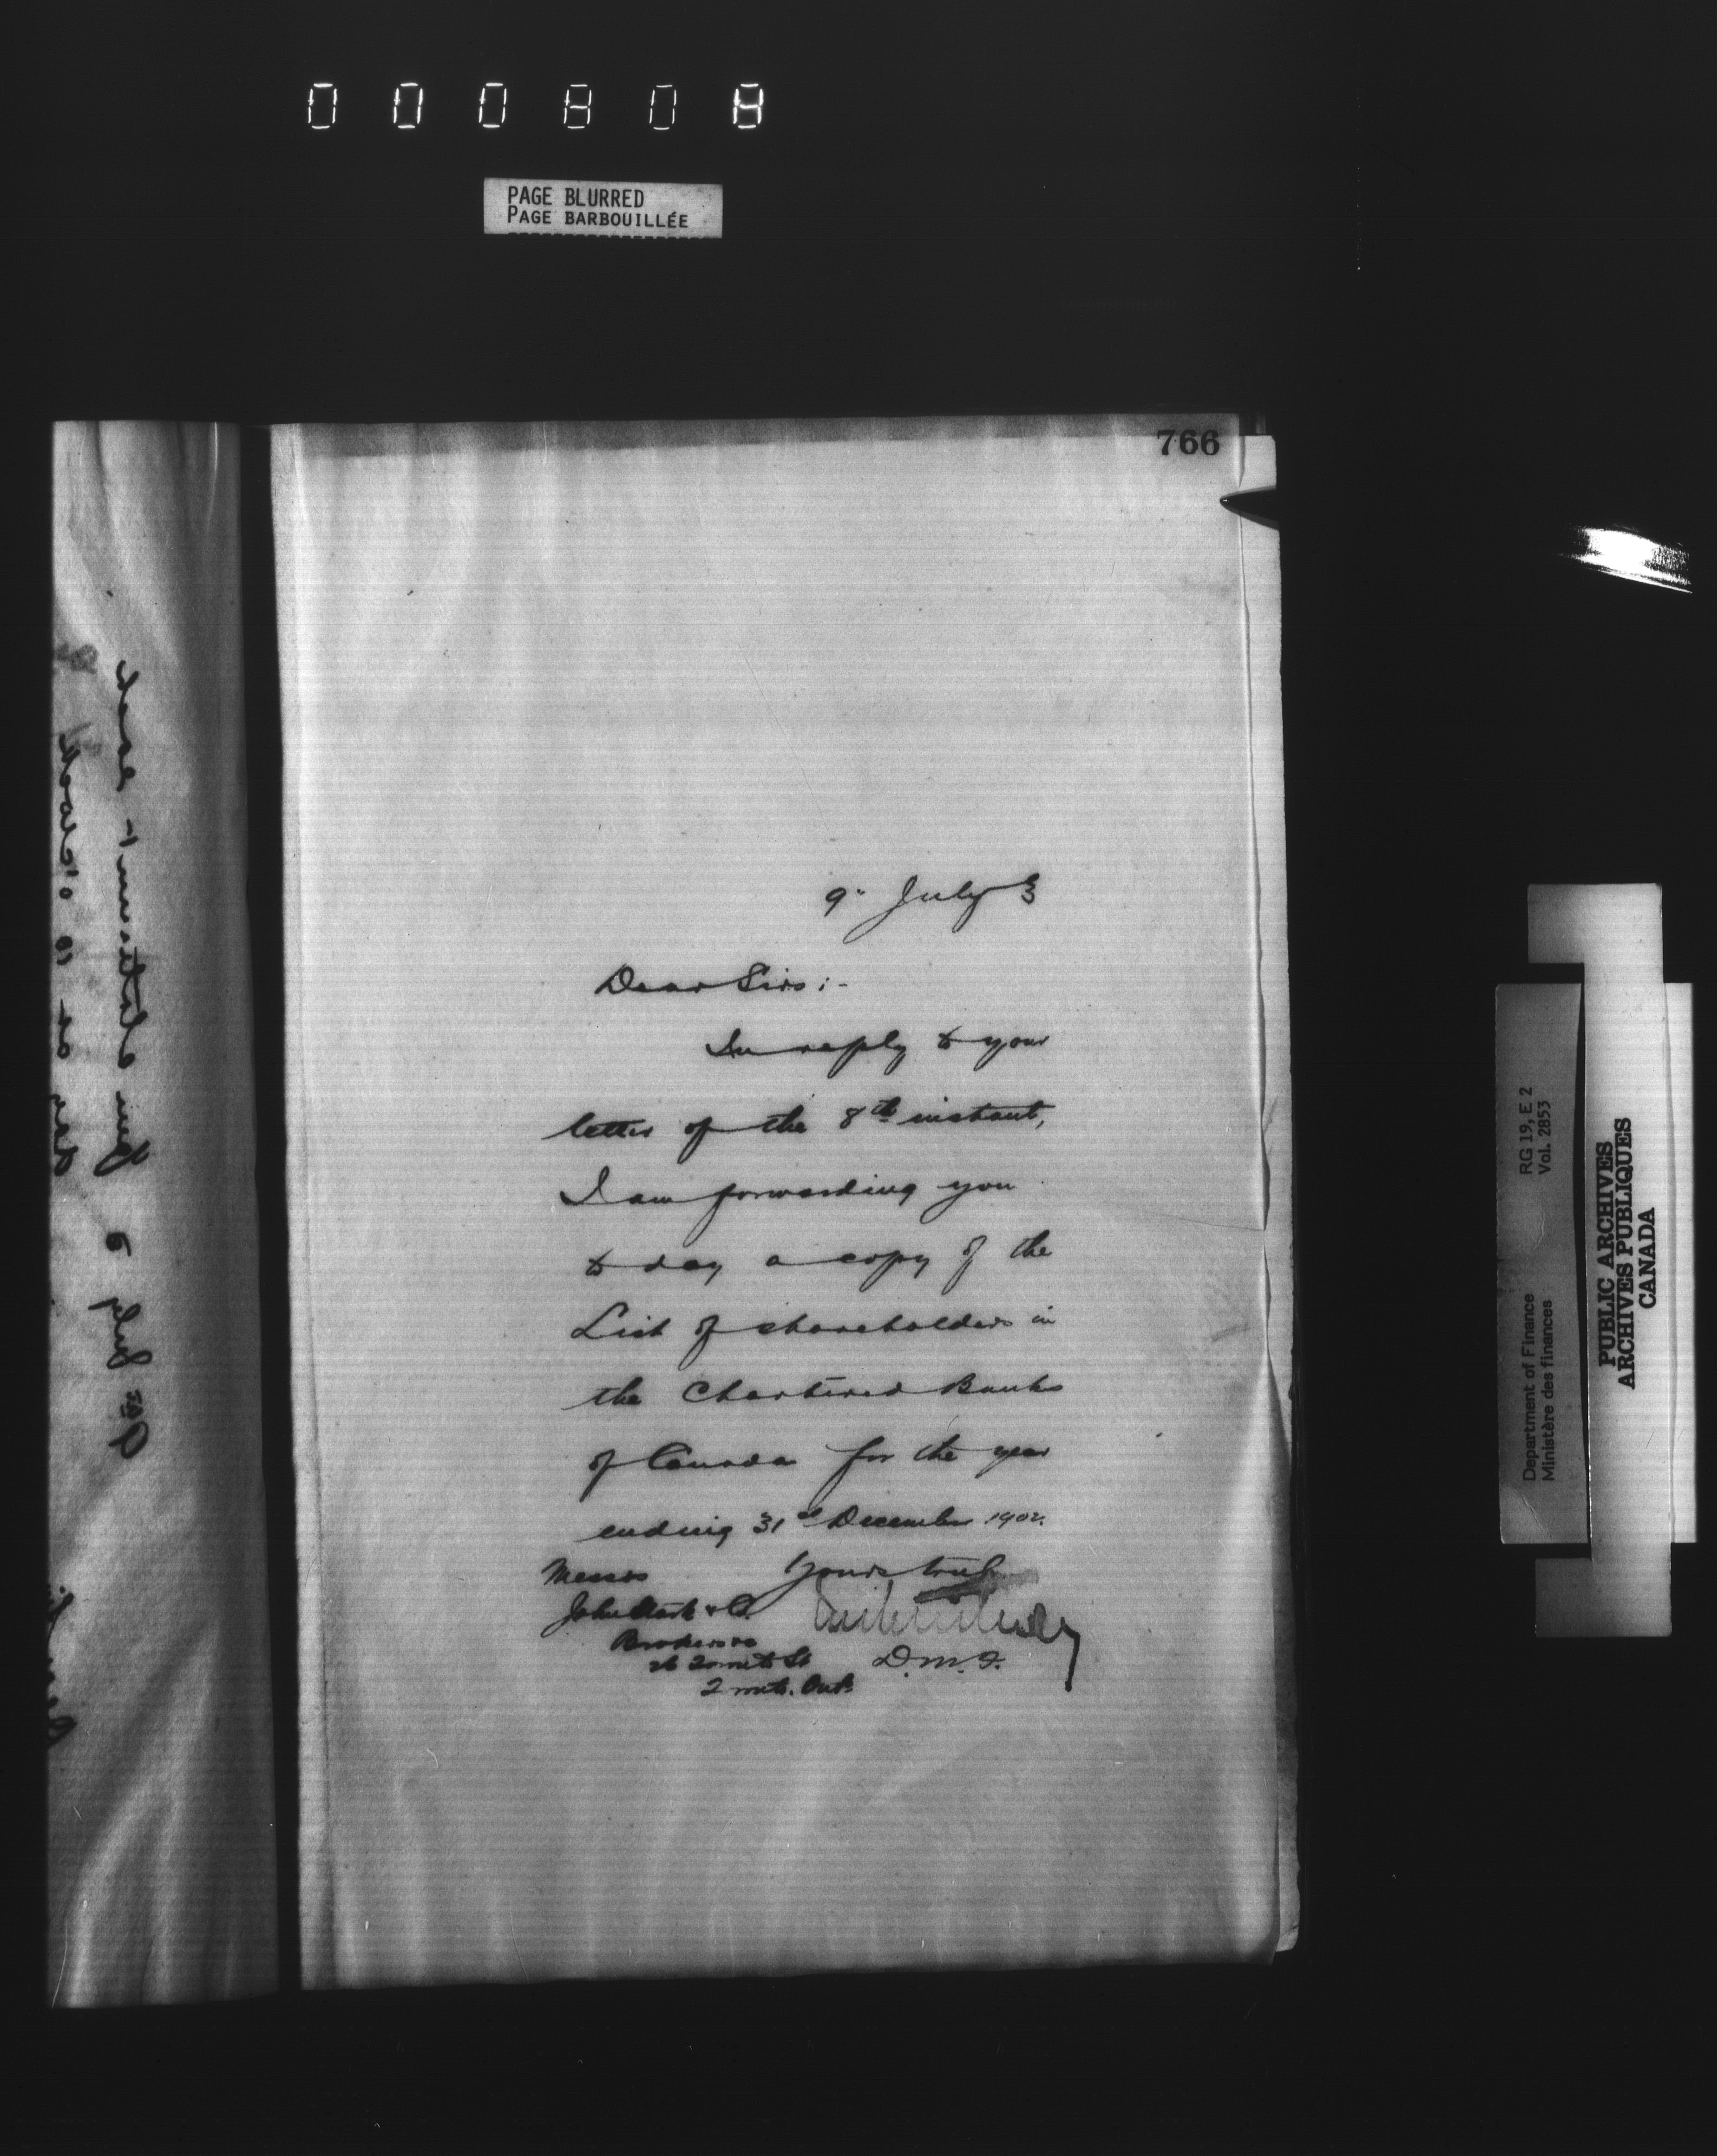 000808
PAGE BLURRED
PAGE BARBOUILLÉE
766
9" July 3
Dear Sirs:-
In reply to your
letter of the 8th instant,
I am forwarding you
to day a copy of the
List of shareholders in
the Chartered Banks
of Canada for the year
ending 31st December 1902.
Yours truly
D.M.F.
Messrs
John Stark & Co.
26 Toronto St
Toronto. Ont.
RG 19, E 2
Vol. 2853
Department of Finance
Ministère des finances
PUBLIC ARCHIVES
ARCHIVES PUBLIQUES
CANADA